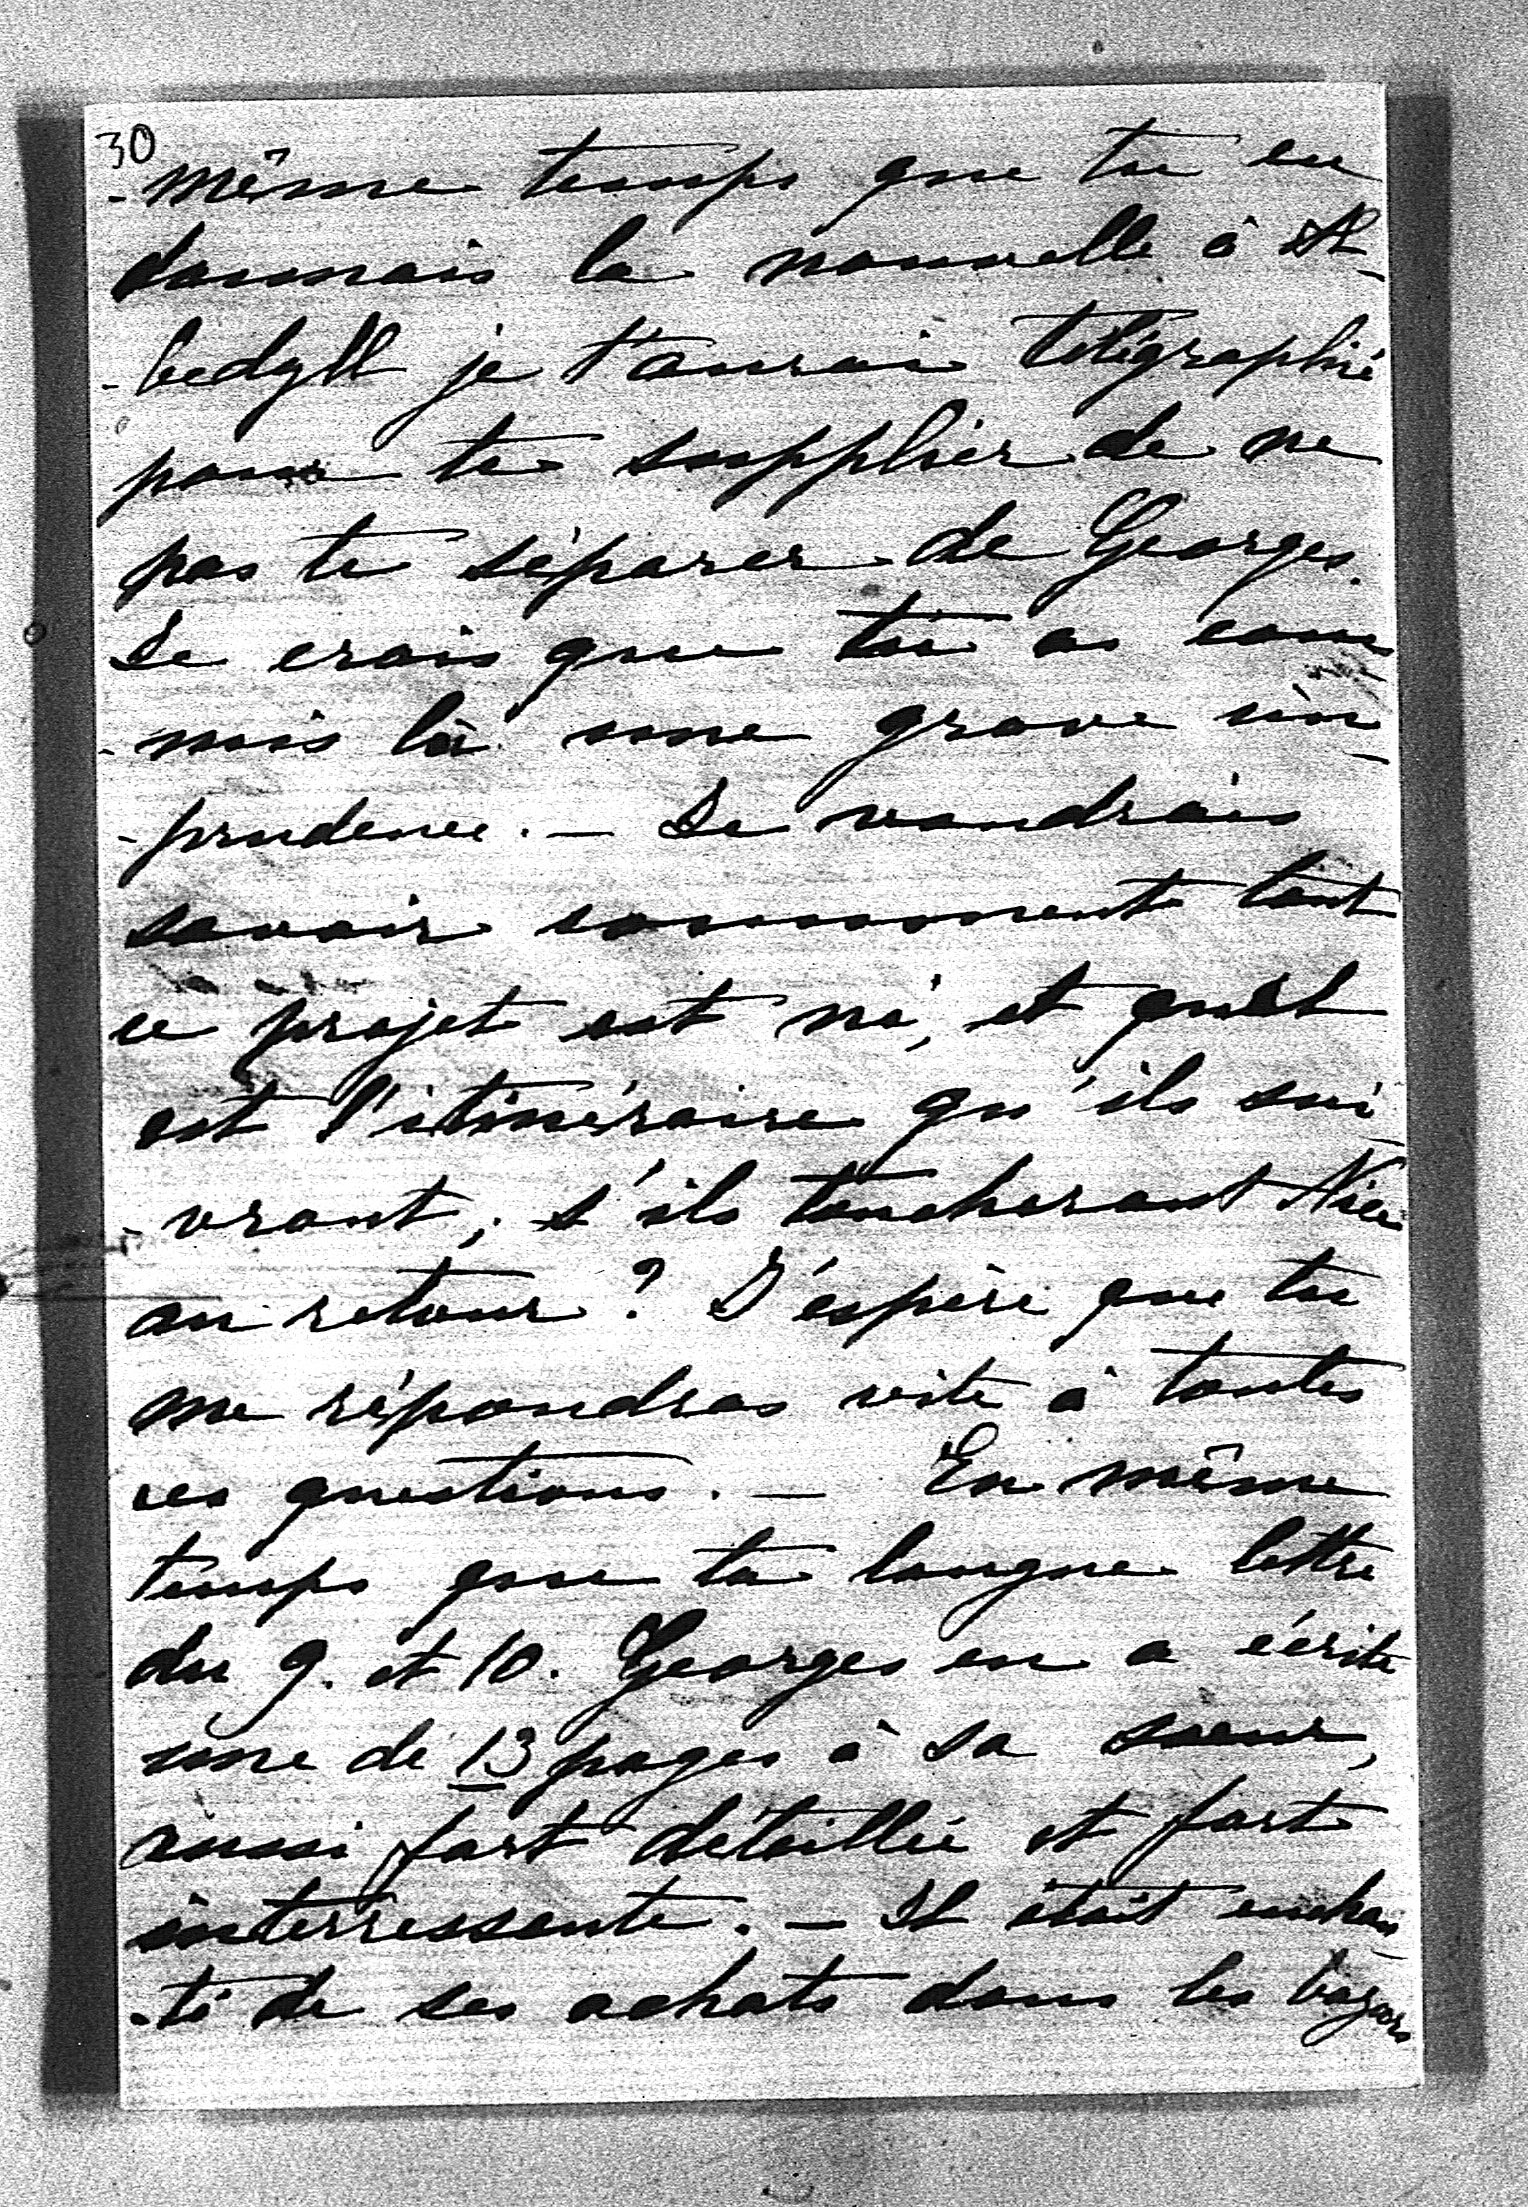 30
-même temps que tu en
donnais la nouvelle à A-
-bedyll je t'aurai télégraphié
pour te supplier de ne
pas te séparer de Georges.
Je crois que tu as com-
-mis là une grave im-
-prudence. — Je voudrais
savoir comment tout
ce projet est né, et quel
est l'itinéraire qu'ils sui-
-vront, s'ils toucheront Nice
au retour? J'espère que tu
me répondras vite à toutes
ces questions. — En même
temps que ta longue lettre
du 9. et 10. Georges en a écrite
une de 13 pages à sa sœur,
aussi fort détaillée et fort
interressante. — Il était enchan-
-té de ses achats dans les bazars